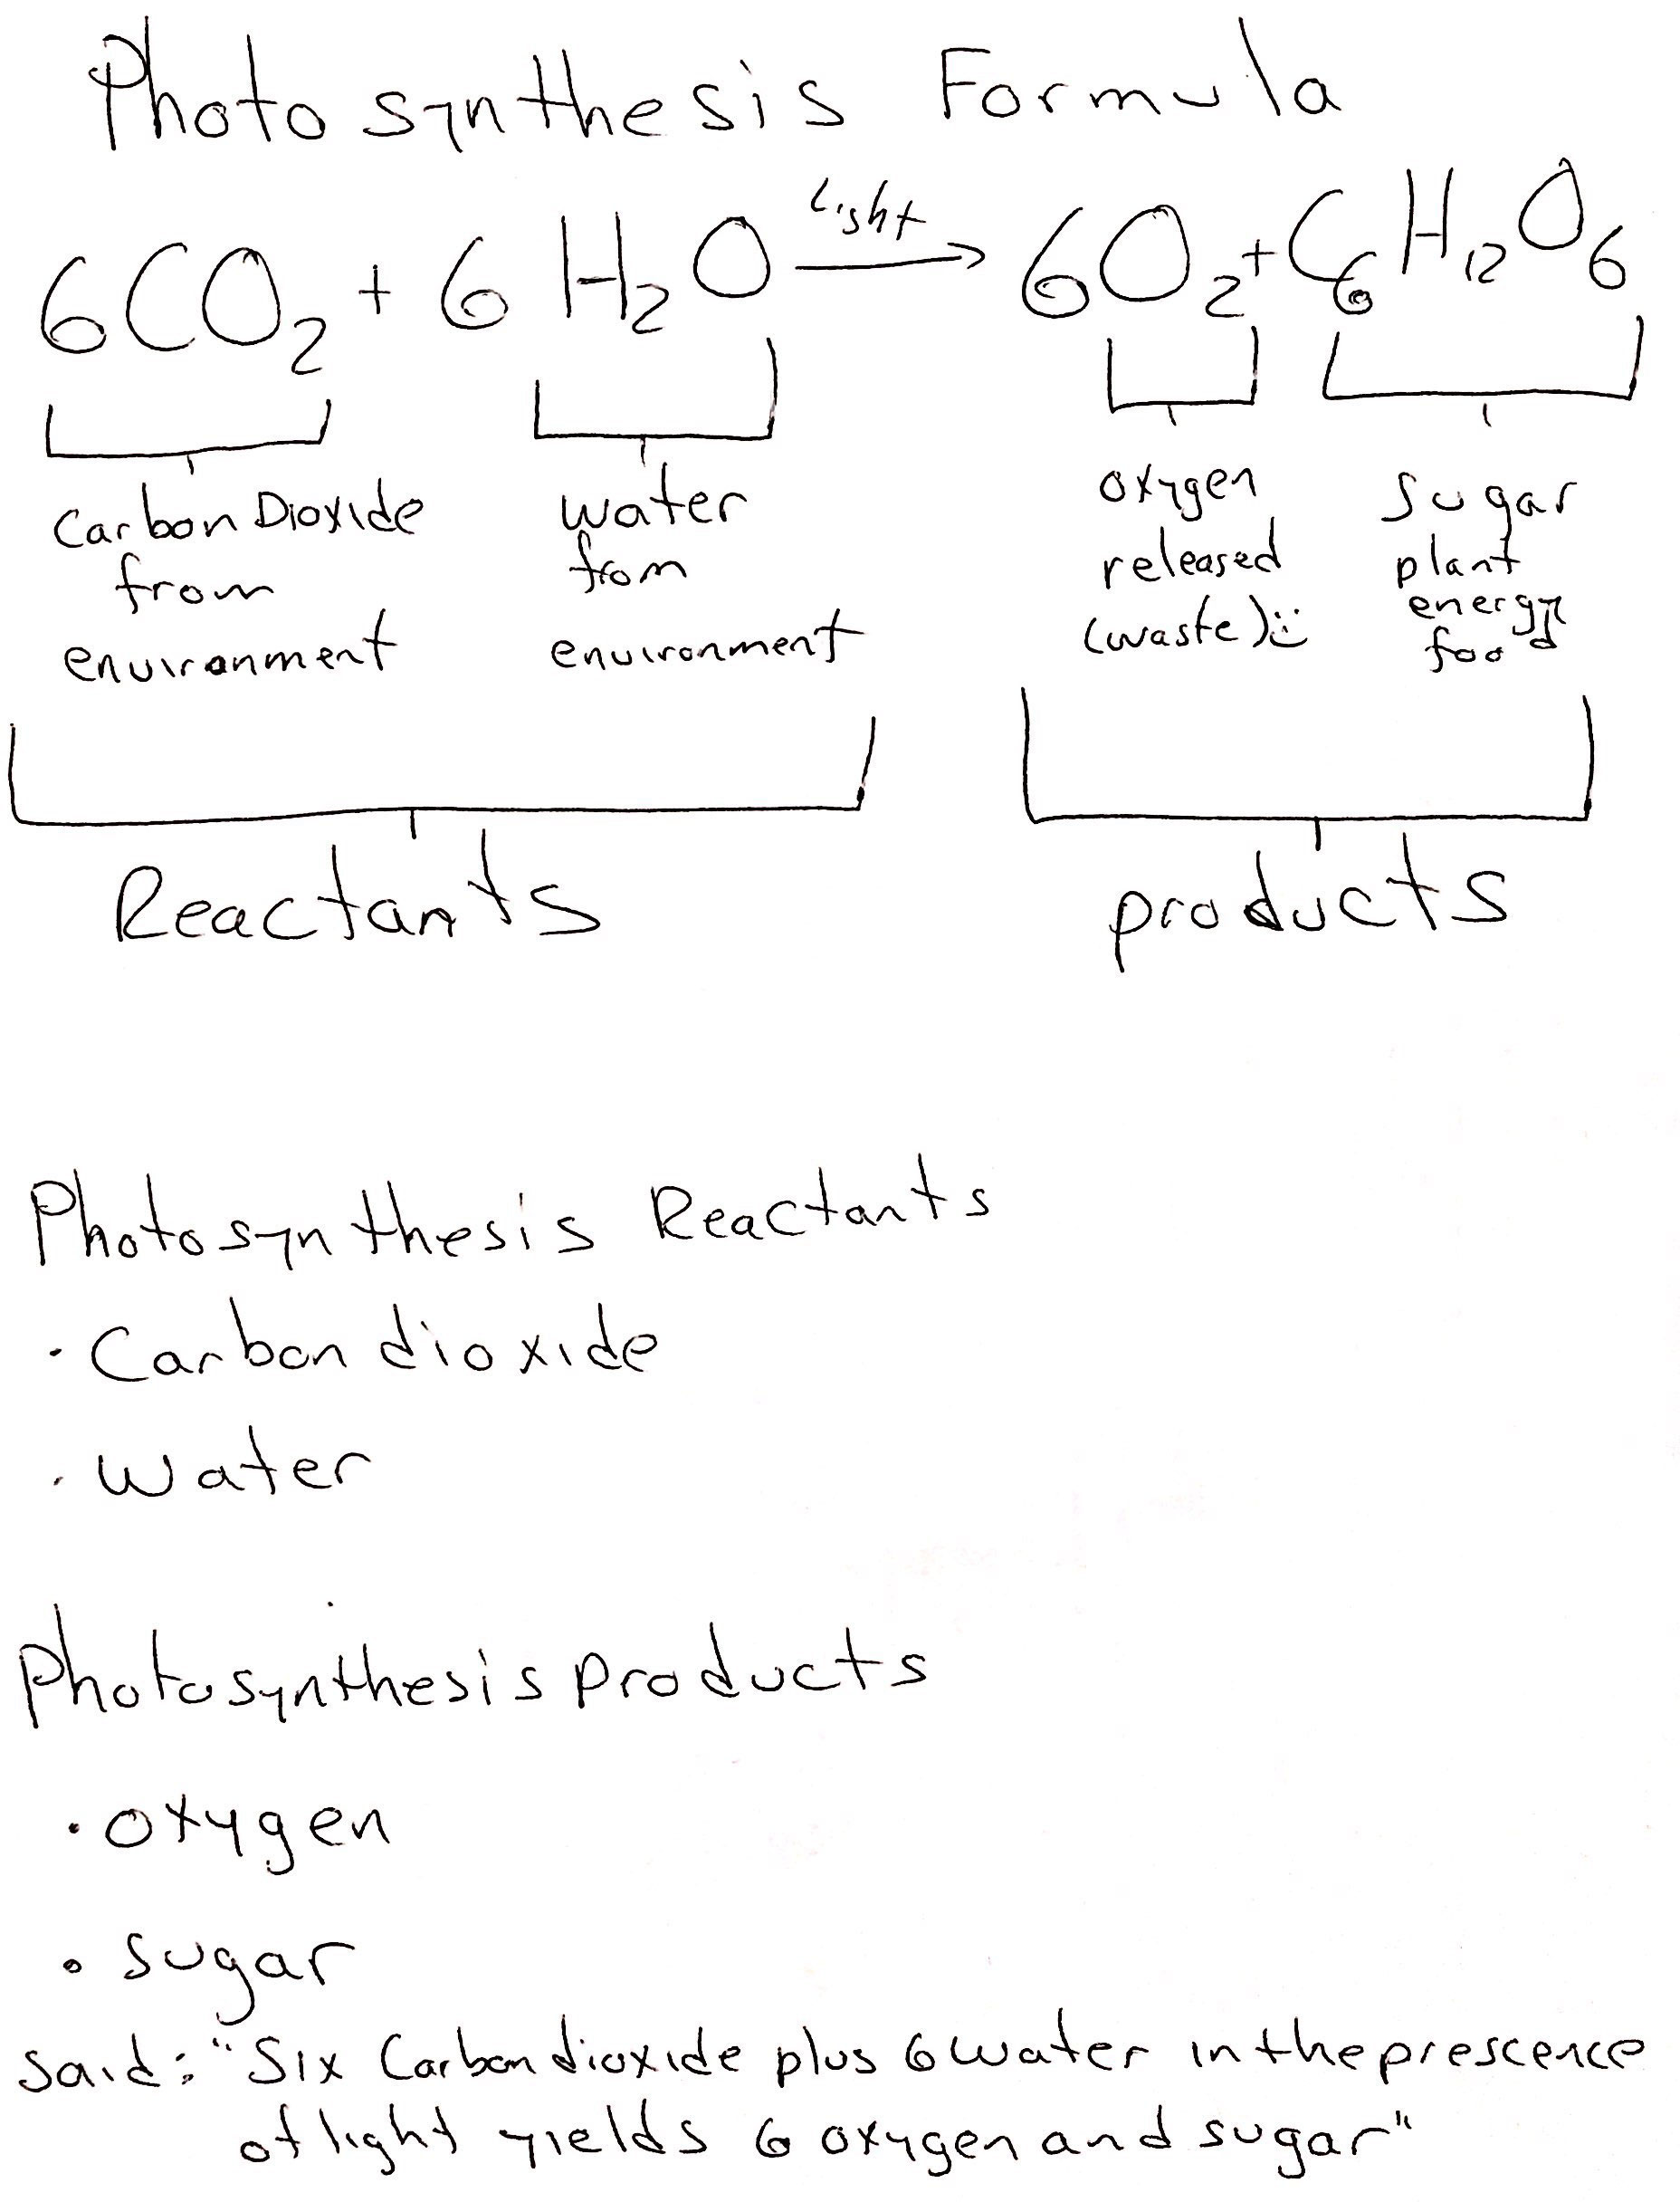 Photosynthesis Formula
Light
6CO₂ + 6 H₂O → 6O₂ + C₆H₁₂O₆
Carbon Dioxide
from
environment
water
from
environment
oxygen
released
(waste) :)
sugar
plant
energy
food
Reactants
products
Photosynthesis Reactants
• Carbon dioxide
• Water
Photosynthesis Products
• oxygen
• sugar
said: "Six Carbon dioxide plus 6 water in the prescence
of light yields 6 oxygen and sugar"